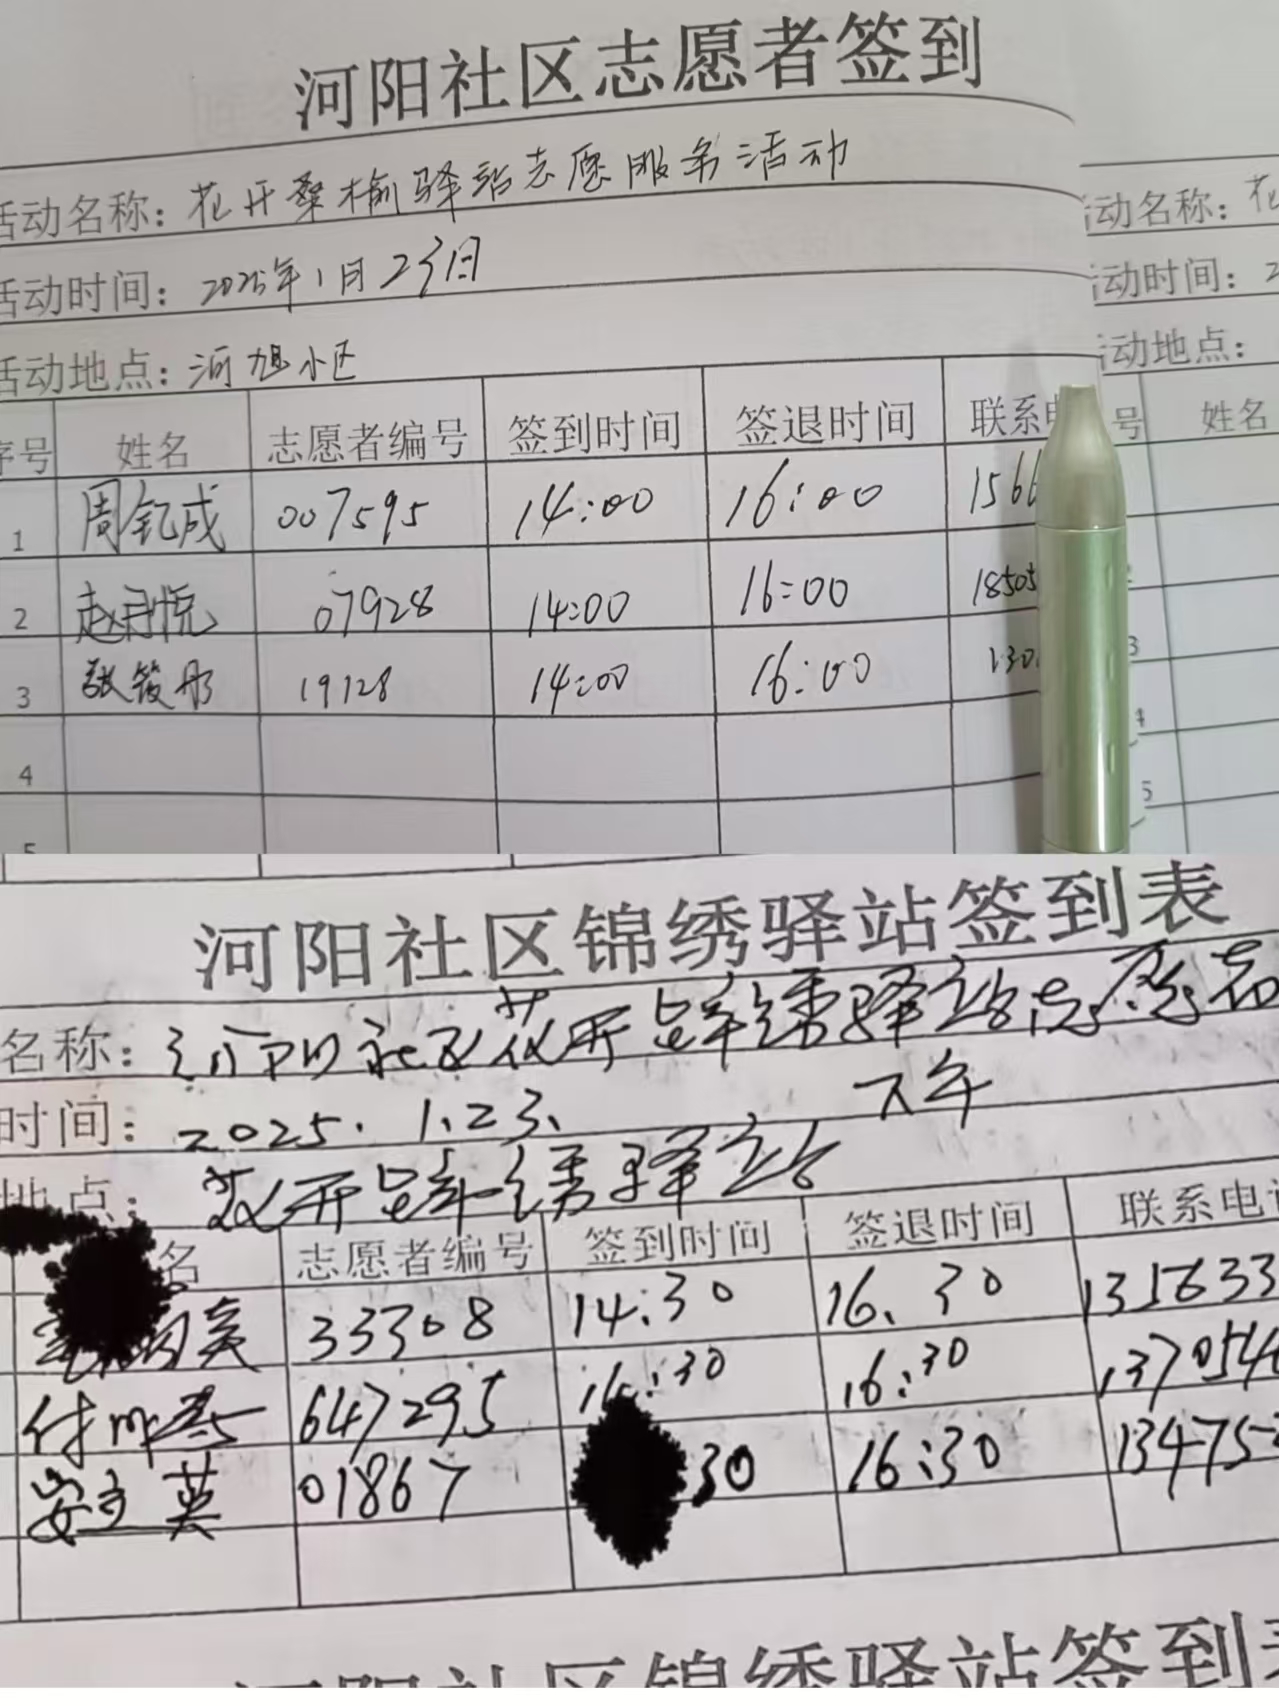 河阳社区志愿者签到
活动名称：花开桑榆驿站志愿服务活动
活动时间：2025年1月23日
活动地点：河旭小区
序号 姓名 志愿者编号 签到时间 签退时间 联系电
1 周钇成 007595 14:00 16:00 156
2 赵君悦 07928 14:00 16:00 18505
3 张筱彤 19128 14:00 16:00 130
4
5
动名称：花
动时间：2
动地点：
号 姓名
3
4
5
河阳社区锦绣驿站签到表
名称：河阳社区花开锦绣驿站志愿者
时间：2025.1.23. 下午
地点：花开锦绣驿站
名 志愿者编号 签到时间 签退时间 联系电话
英 33308 14:30 16.30 135633
付 647295 14:30 16:30 1370546
安立英 01867 30 16:30 13475
河阳社区锦绣驿站签到表